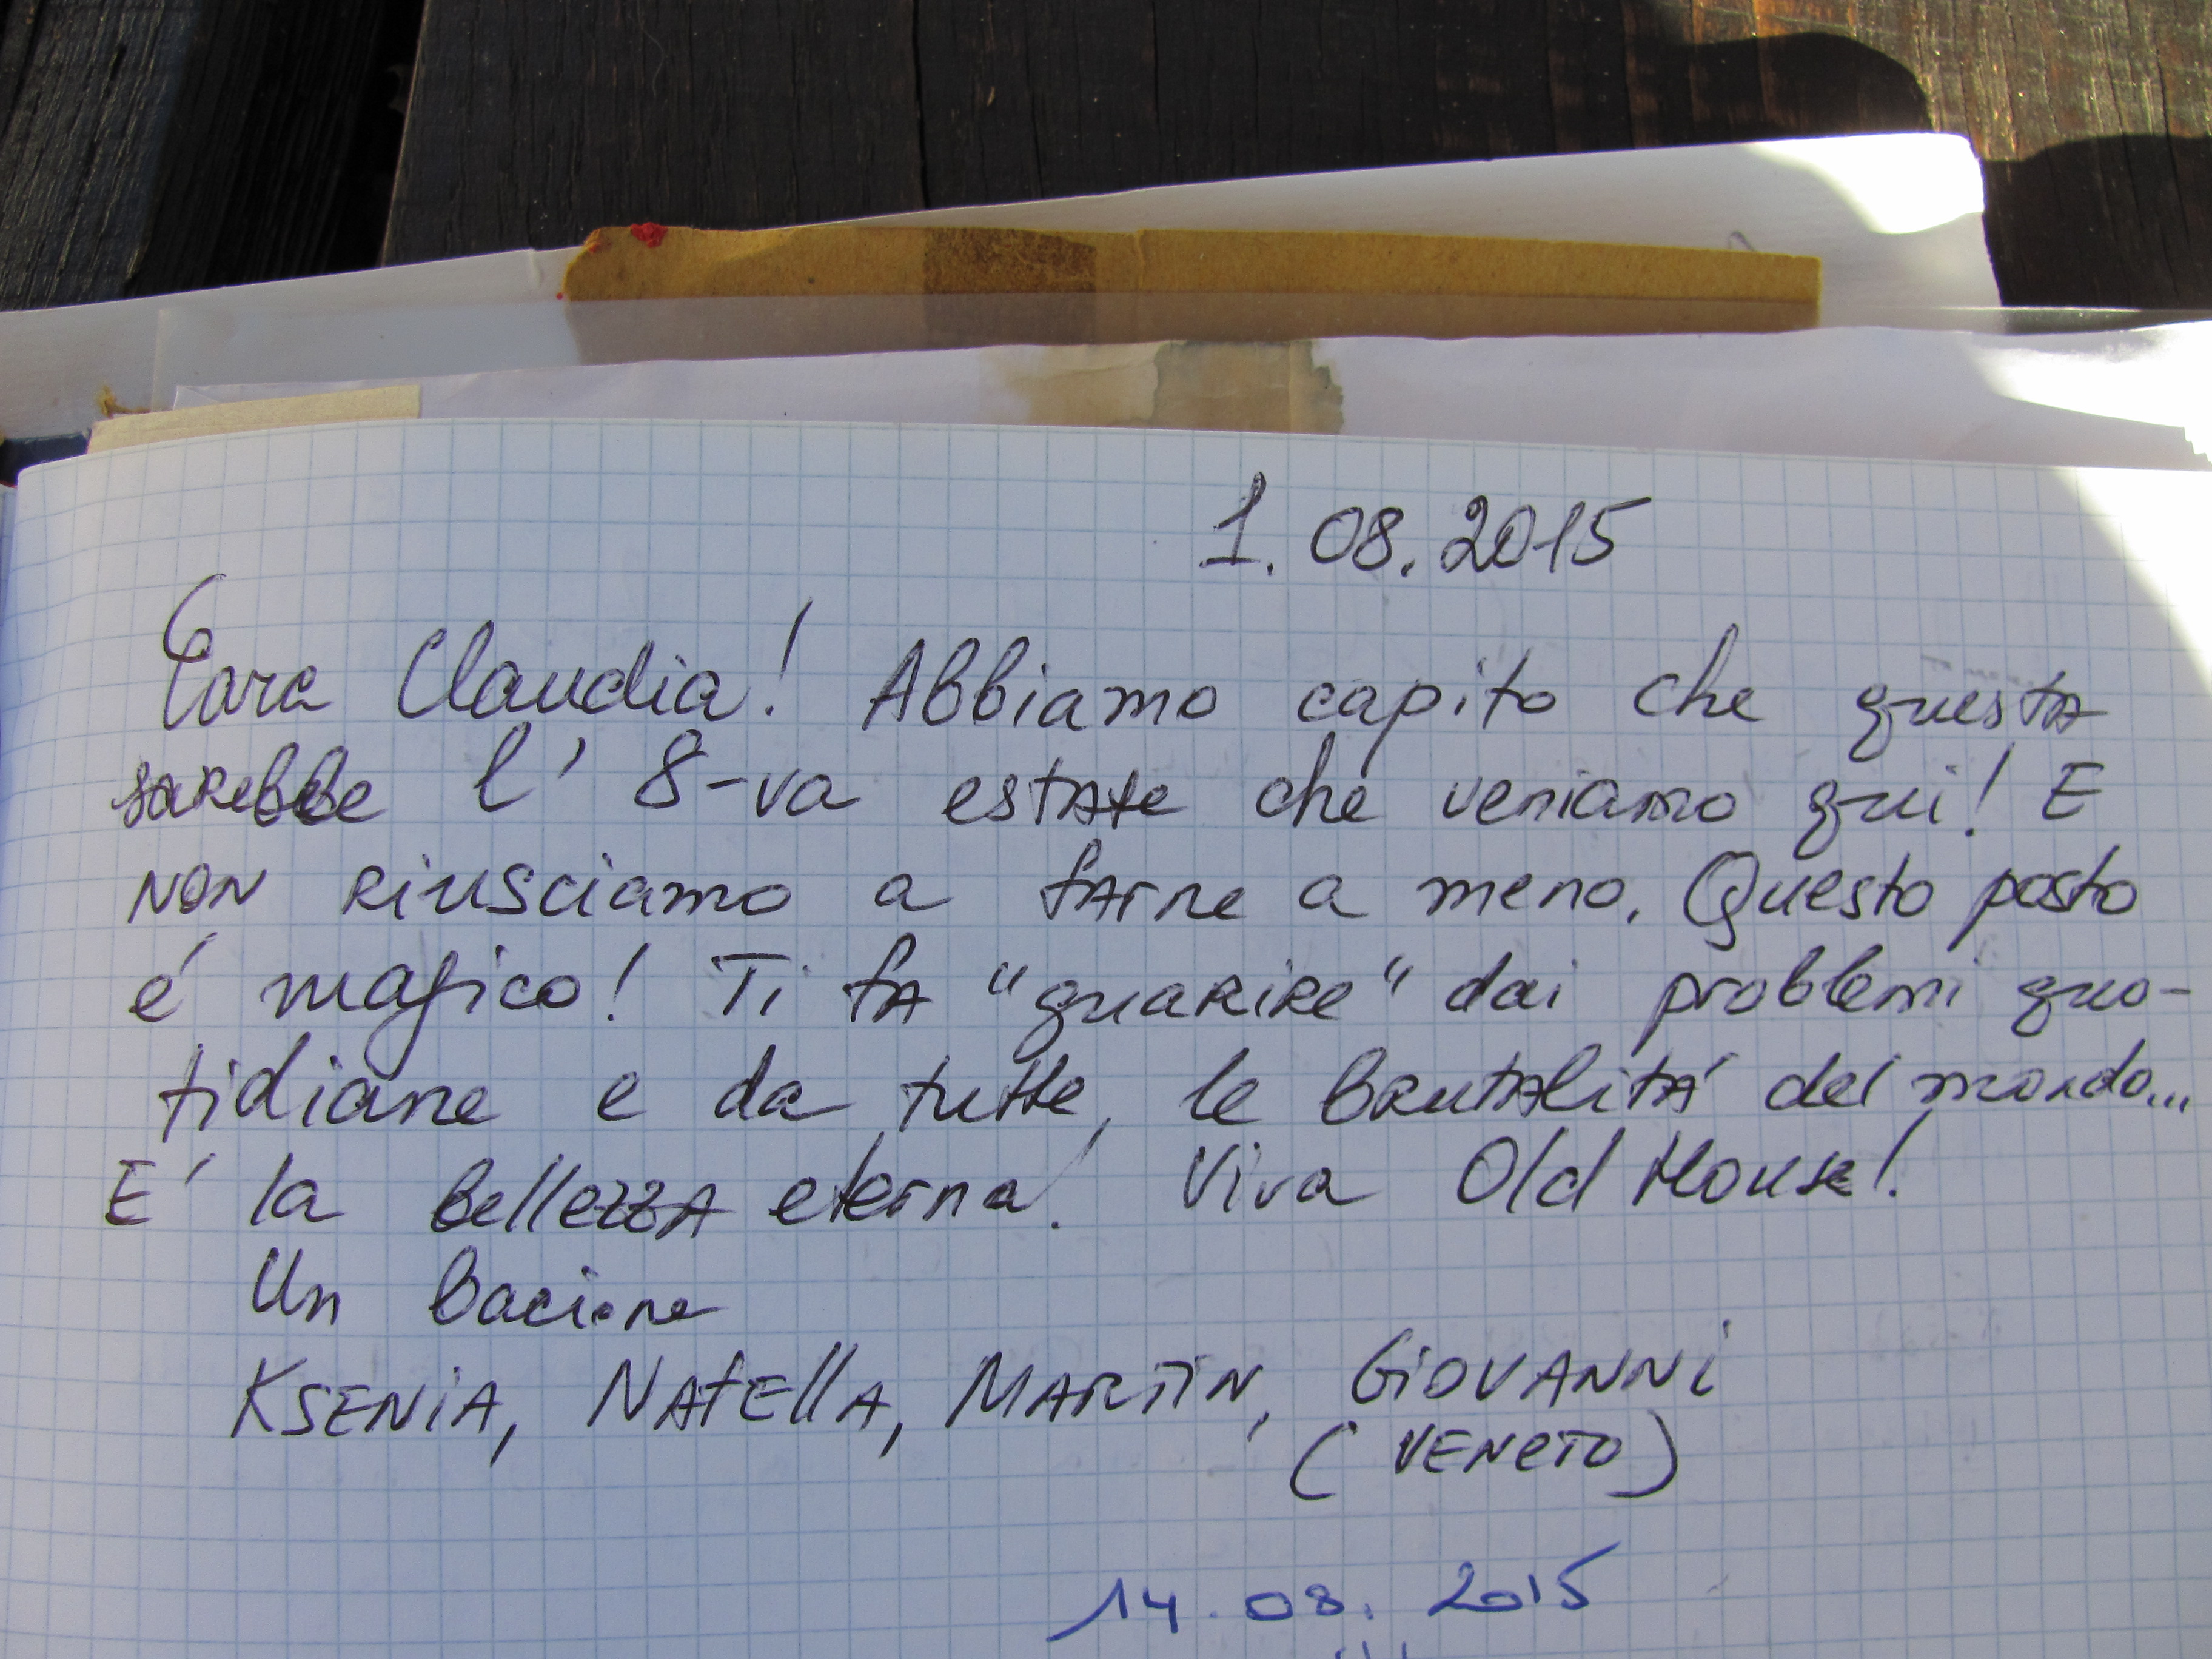 1.08.2015
Cara Claudia! Abbiamo capito che questa
sarebbe l' 8-va estate che veniamo qui! E
non riusciamo a farne a meno. Questo posto
é magico! Ti fa "guarire" dai problemi quo-
tidiane e da tutte le brutalitá del mondo...
E' la bellezza eterna! Viva Old House!
Un bacione
KSENIA, NATELLA, MARTIN, GIOVANNI
(VENETO)
14.08.2015